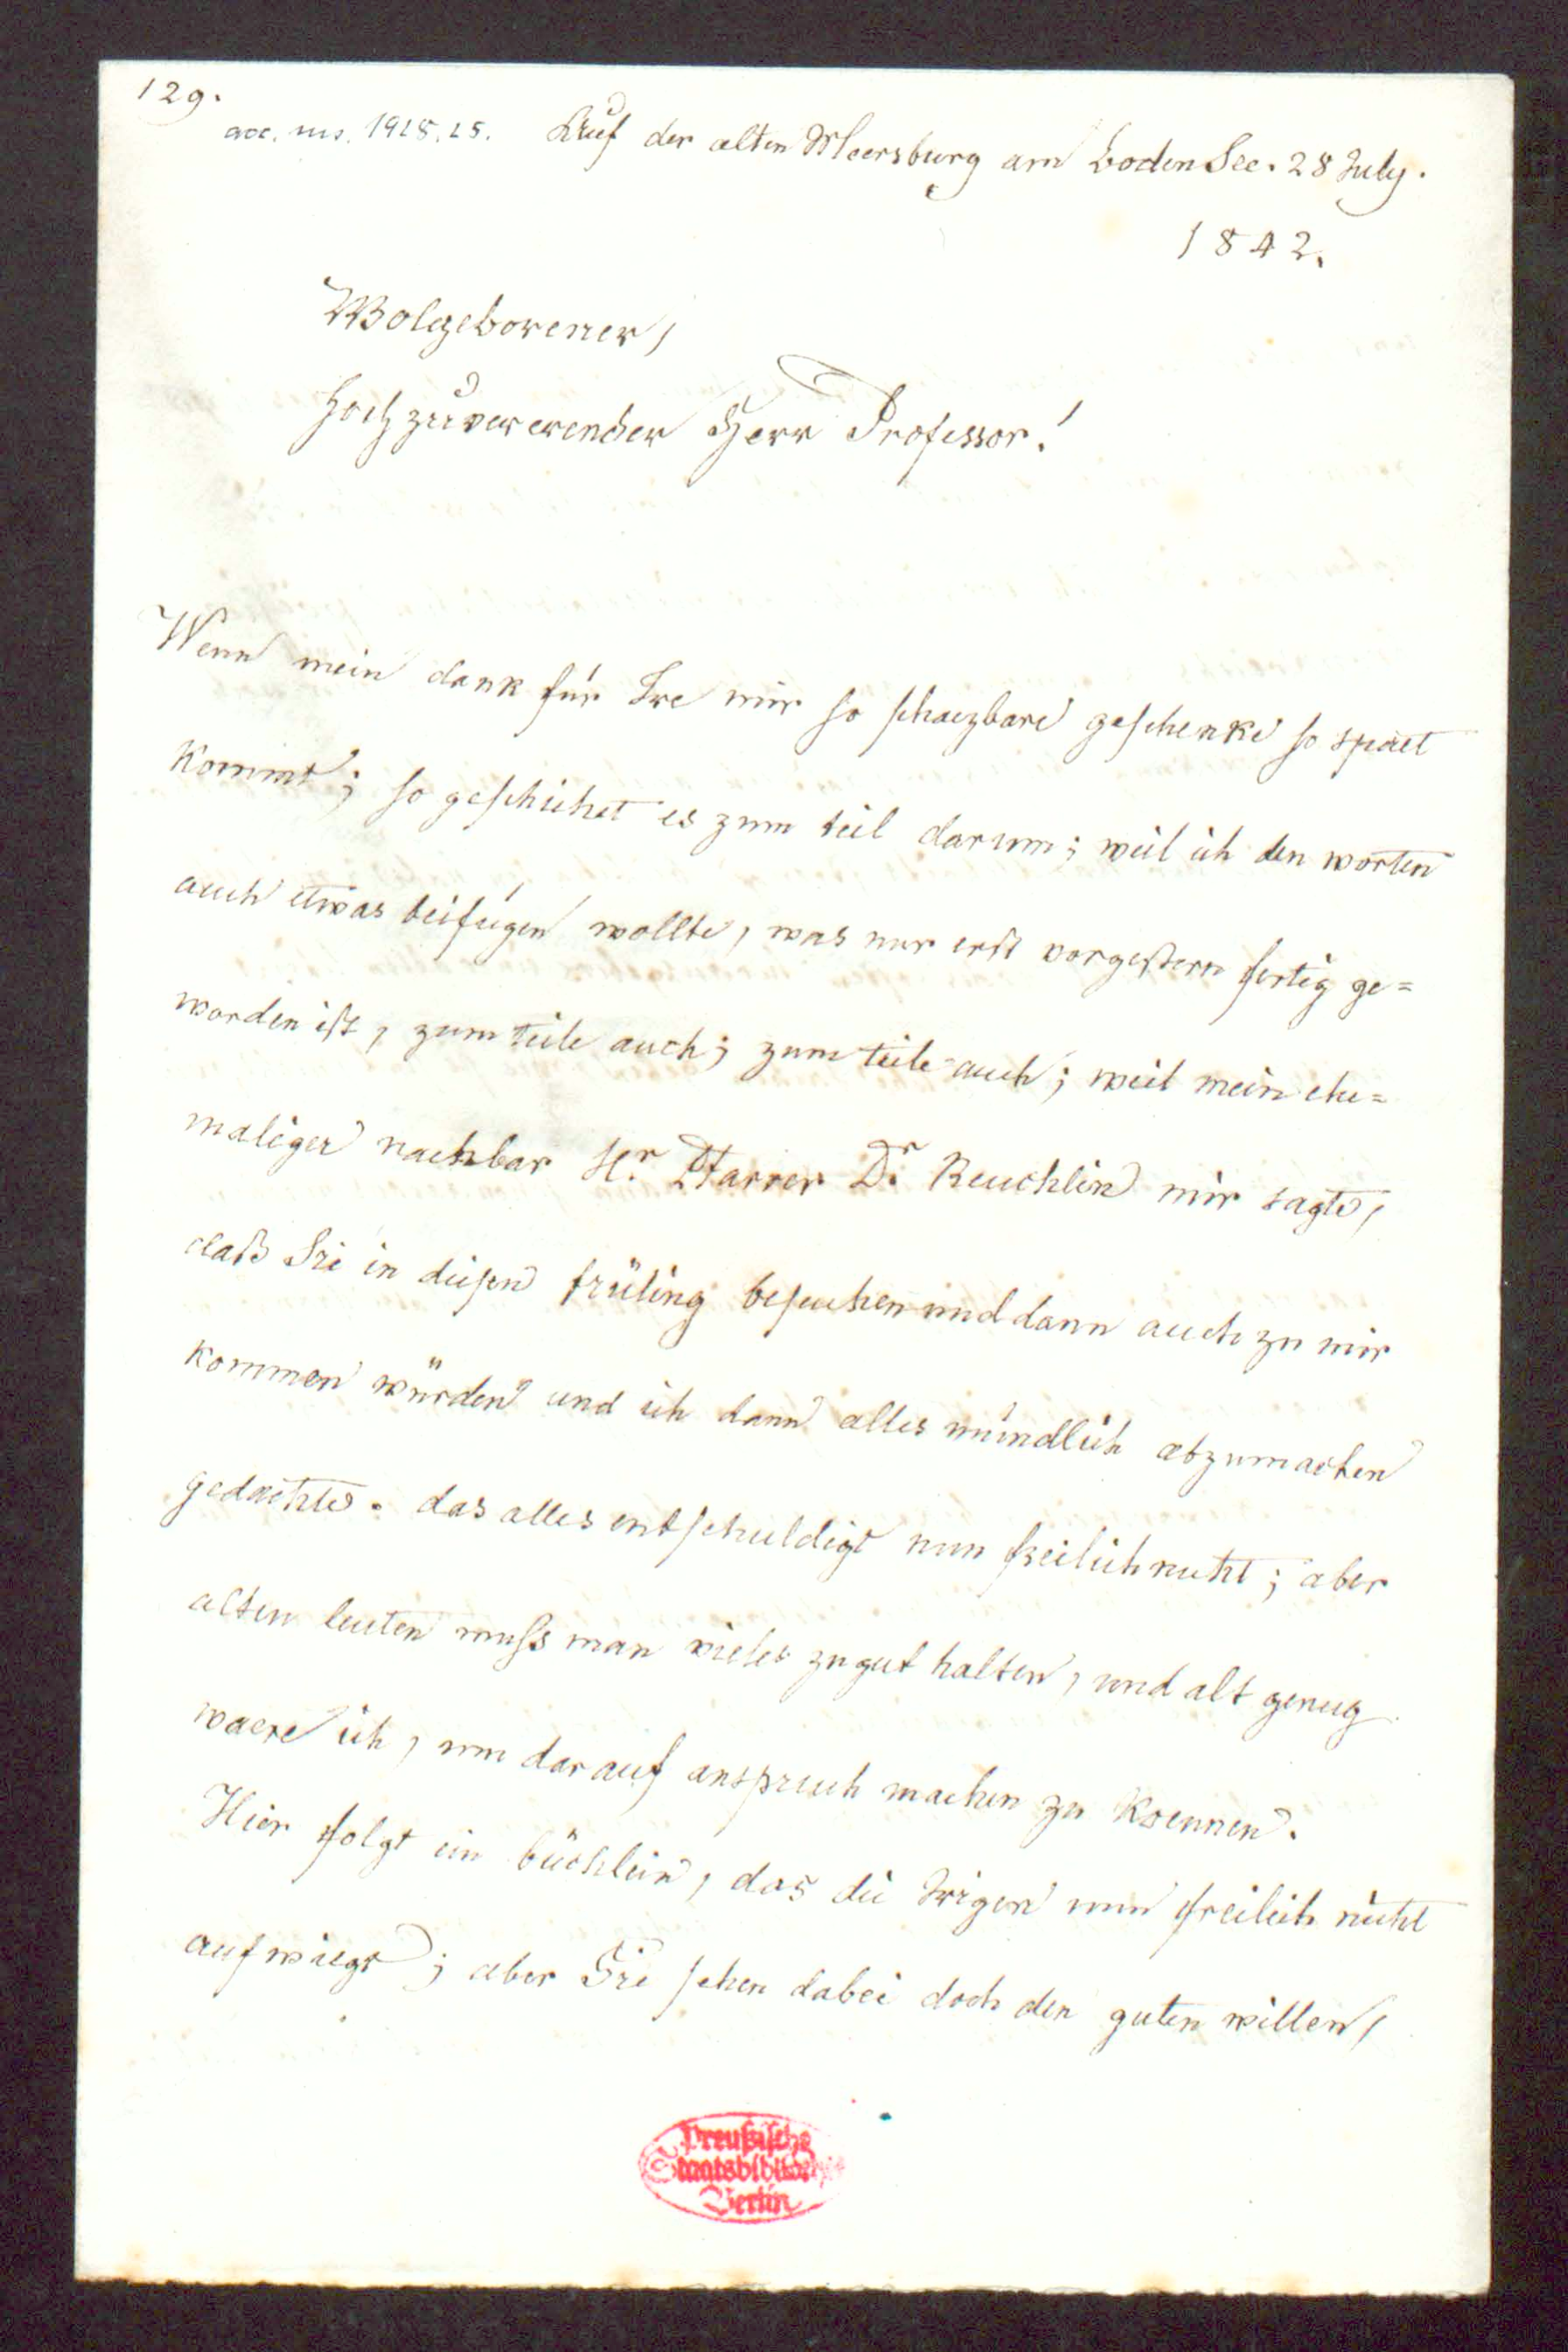 129.
acc. ms. 1918.25. Auf der alten Meersburg am BodenSee. 28 July.
1842.
Wolgeborener,
Hochzuvererender Herr Professor!
Wenn mein dank für Ire mir so schaezbare geschenke so spaet
kommt; so geschiehet es zum teil darum; weil ich den worten
auch etwas beifügen wollte, was nur erst vorgestern fertig ge=
worden ist, zum teile auch; zum teile auch; weil mein ehe=
maliger nachbar Hr. Pfarrer Dr. Reuchlin mir sagte,
daß Sie in diesen früling besuchen und dann auch zu mir
kommen würden und ich dann alles mündlich abzumachen
gedachte. das alles entschuldigt nun freilich nicht; aber
alten leuten muss man vieles zu gut halten, und alt genug
waere ich, um darauf anspruch machen zu koennen.
Hier folgt ein büchlein, das die Irigen nun freilich nicht
aufwiegt; aber Sie sehen dabei doch den guten willen,
Preußische
Staatsbibliothek
Berlin